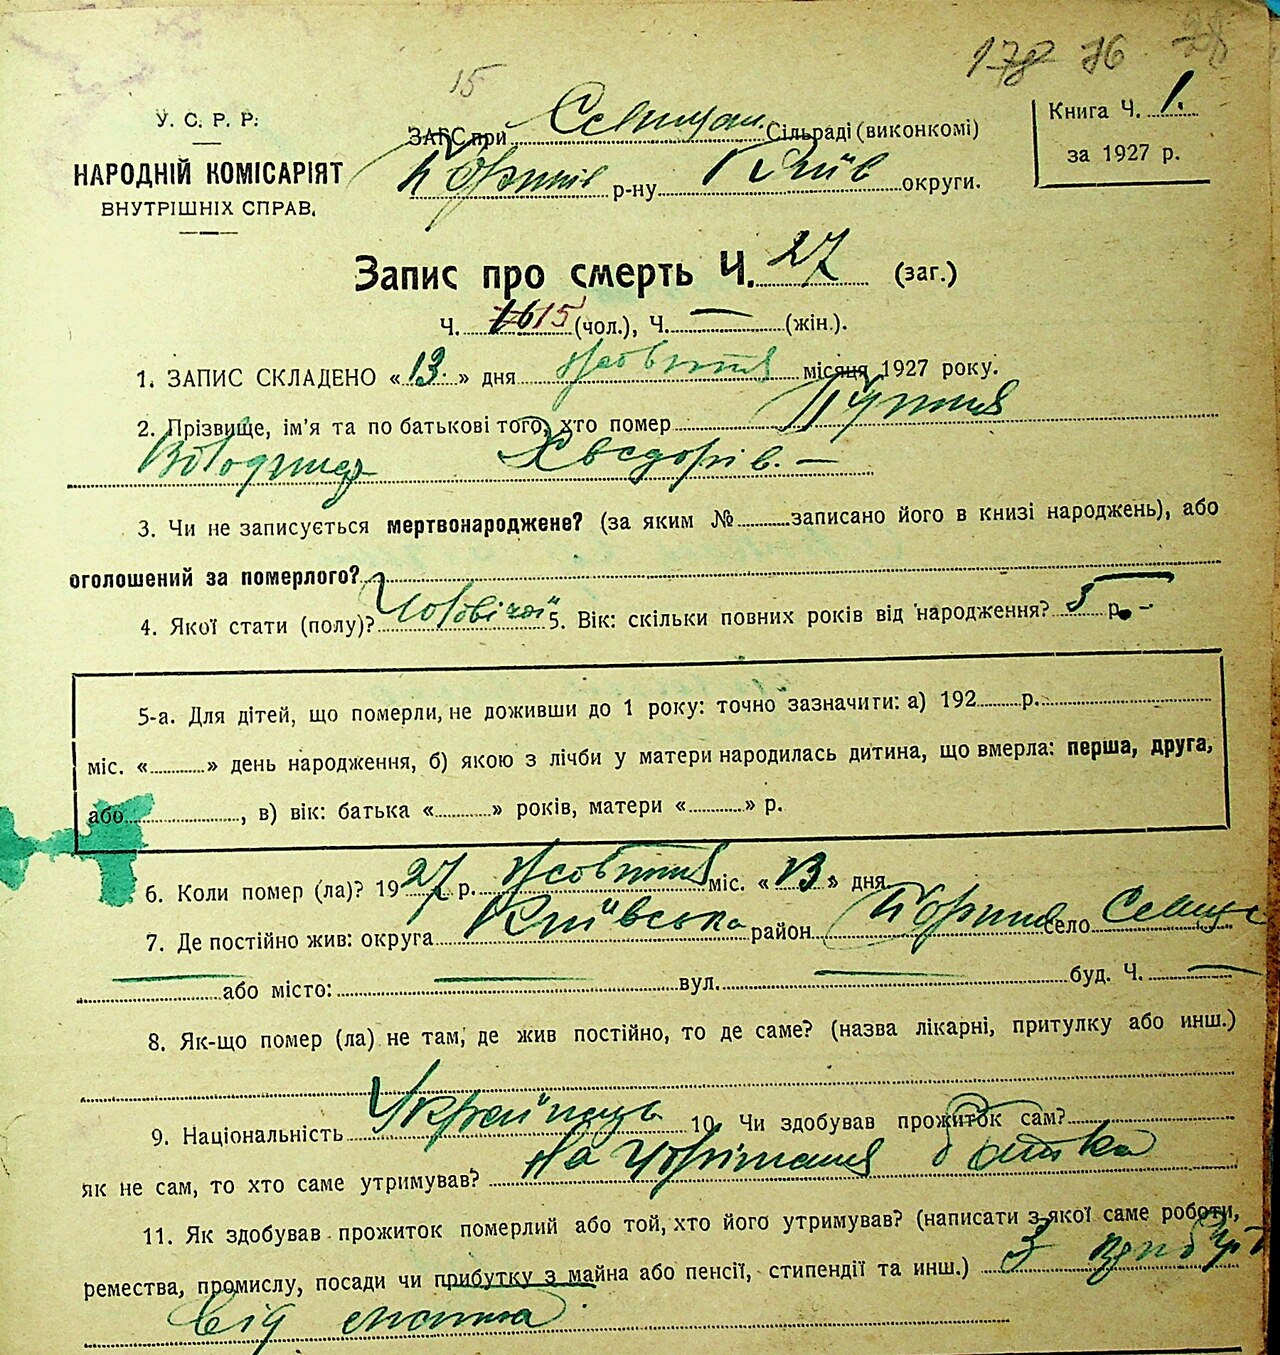 178 76 28
15
У. С. Р. Р.
НАРОДНІЙ КОМІСАРІЯТ
ВНУТРІШНІХ СПРАВ.
ЗАГС при Сільраді (виконкомі)
р-ну Київ округи.
Книга Ч. 1.
за 1927 р.
Запис про смерть Ч. 27 (заг.)
Ч. 16 15 (чол.), Ч. — (жін.).
1. ЗАПИС СКЛАДЕНО «13.» дня Жовтня місяця 1927 року.
2. Прізвище, ім'я та по батькові того, хто помер
Володимир Хведорів. —
3. Чи не записується мертвонароджене? (за яким № записано його в книзі народжень), або
оголошений за померлого?
4. Якої стати (полу)? Чоловічої 5. Вік: скільки повних років від народження? 5 р. –
5-а. Для дітей, що померли, не доживши до 1 року: точно зазначити: а) 192 р.
міс. « » день народження, б) якою з лічби у матери народилась дитина, що вмерла: перша, друга,
або , в) вік: батька « » років, матери « » р.
6. Коли помер (ла)? 1927 р. Жовтня міс. «13» дня
7. Де постійно жив: округа Київська район село
або місто: — вул. — буд. Ч. —
8. Як-що помер (ла) не там, де жив постійно, то де саме? (назва лікарні, притулку або инш.)
9. Національність Українець 10. Чи здобував прожиток сам?
як не сам, то хто саме утримував? На утримання батька
11. Як здобував прожиток померлий або той, хто його утримував? (написати з якої саме роботи,
ремества, промислу, посади чи прибутку з майна або пенсії, стипендії та инш.) З
від